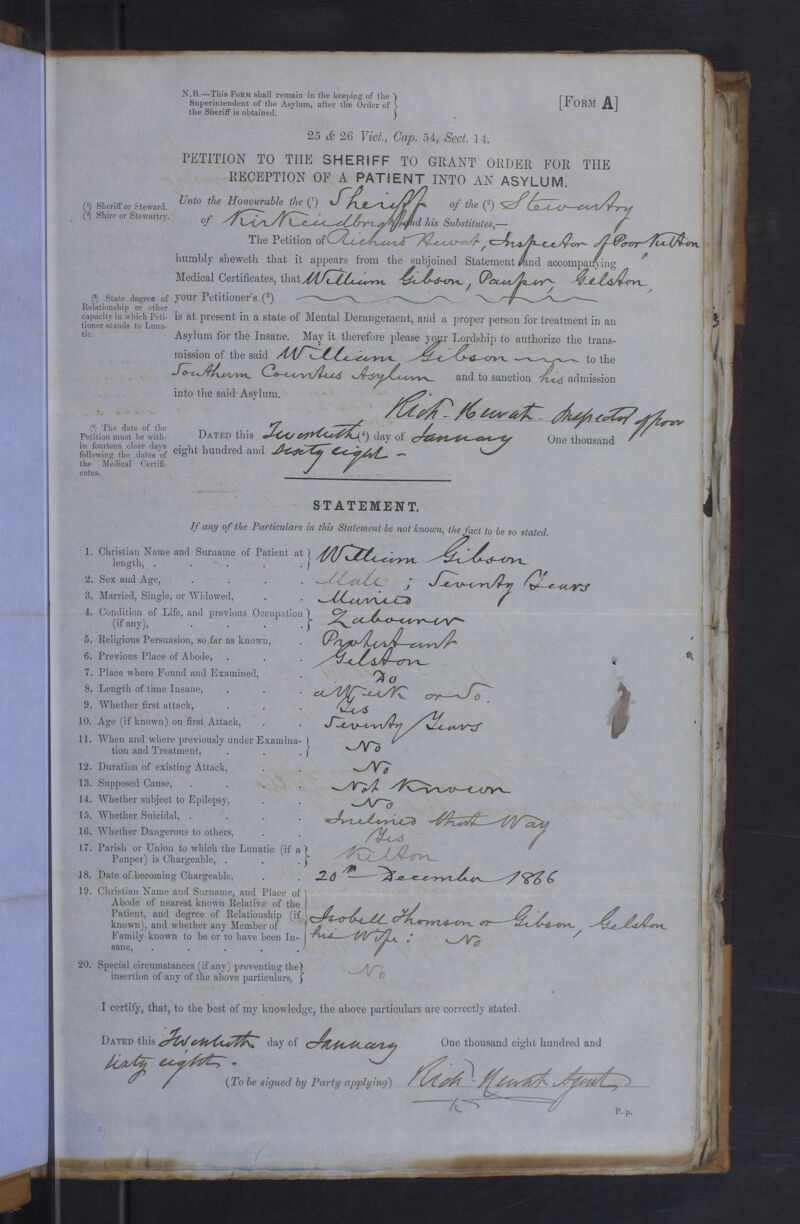 N.B.—This Form shall remain in the keeping of the
Superintendent of the Asylum, after the Order of
the Sheriff is obtained.
[Form A]
25 & 26 Vict., Cap. 54, Sect. 14.
PETITION TO THE SHERIFF TO GRANT ORDER FOR THE
RECEPTION OF A PATIENT INTO AN ASYLUM.
(¹) Sheriff or Steward.
(²) Shire or Stewartry.
Unto the Honourable the (¹) Sheriff of the (²) Stewartry
of Kirkcudbright and his Substitutes,—
The Petition of Richard Hewat, Inspector of Poor Kelton
humbly sheweth that it appears from the subjoined Statement and accompanying
Medical Certificates, that William Gibson, Pauper, Gelston,
(³) State degree of
Relationship or other
capacity in which Peti-
tioner stands to Luna-
tic.
your Petitioner's (³)
is at present in a state of Mental Derangement, and a proper person for treatment in an
Asylum for the Insane. May it therefore please your Lordship to authorize the trans-
mission of the said William Gibson to the
Southern Counties Asylum and to sanction his admission
into the said Asylum.
Rich. Hewat. Inspector of poor
(⁴) The date of the
Petition must be with-
in fourteen clear days
following the dates of
the Medical Certifi-
cates.
Dated this Twentieth (⁴) day of January One thousand
eight hundred and Sixty eight -
STATEMENT.
If any of the Particulars in this Statement be not known, the fact to be so stated.
1. Christian Name and Surname of Patient at
length, . William Gibson
2. Sex and Age, Male ; Seventy Years
3. Married, Single, or Widowed, Married
4. Condition of Life, and previous Occupation
(if any), Labourer
5. Religious Persuasion, so far as known, Protestant
6. Previous Place of Abode, Gelston
7. Place where Found and Examined, Do
8. Length of time Insane, a Week or So.
9. Whether first attack, Yes
10. Age (if known) on first Attack, Seventy Years
11. When and where previously under Examina-
tion and Treatment, No
12. Duration of existing Attack, No
13. Supposed Cause, Not Known
14. Whether subject to Epilepsy, No
15. Whether Suicidal, Inclined that Way
16. Whether Dangerous to others, Yes
17. Parish or Union to which the Lunatic (if a
Pauper) is Chargeable, Kelton
18. Date of becoming Chargeable, 20th December 1866
19. Christian Name and Surname, and Place of
Abode of nearest known Relative of the
Patient, and degree of Relationship (if
known), and whether any Member of
Family known to be or to have been In-
sane,
Isobell Thomson or Gibson, Gelston
his Wife : No
20. Special circumstances (if any) preventing the
insertion of any of the above particulars, No
I certify, that, to the best of my knowledge, the above particulars are correctly stated.
Dated this Twentieth day of January One thousand eight hundred and
sixty eight -
(To be signed by Party applying) Rich. Hewat Agent
P. p.